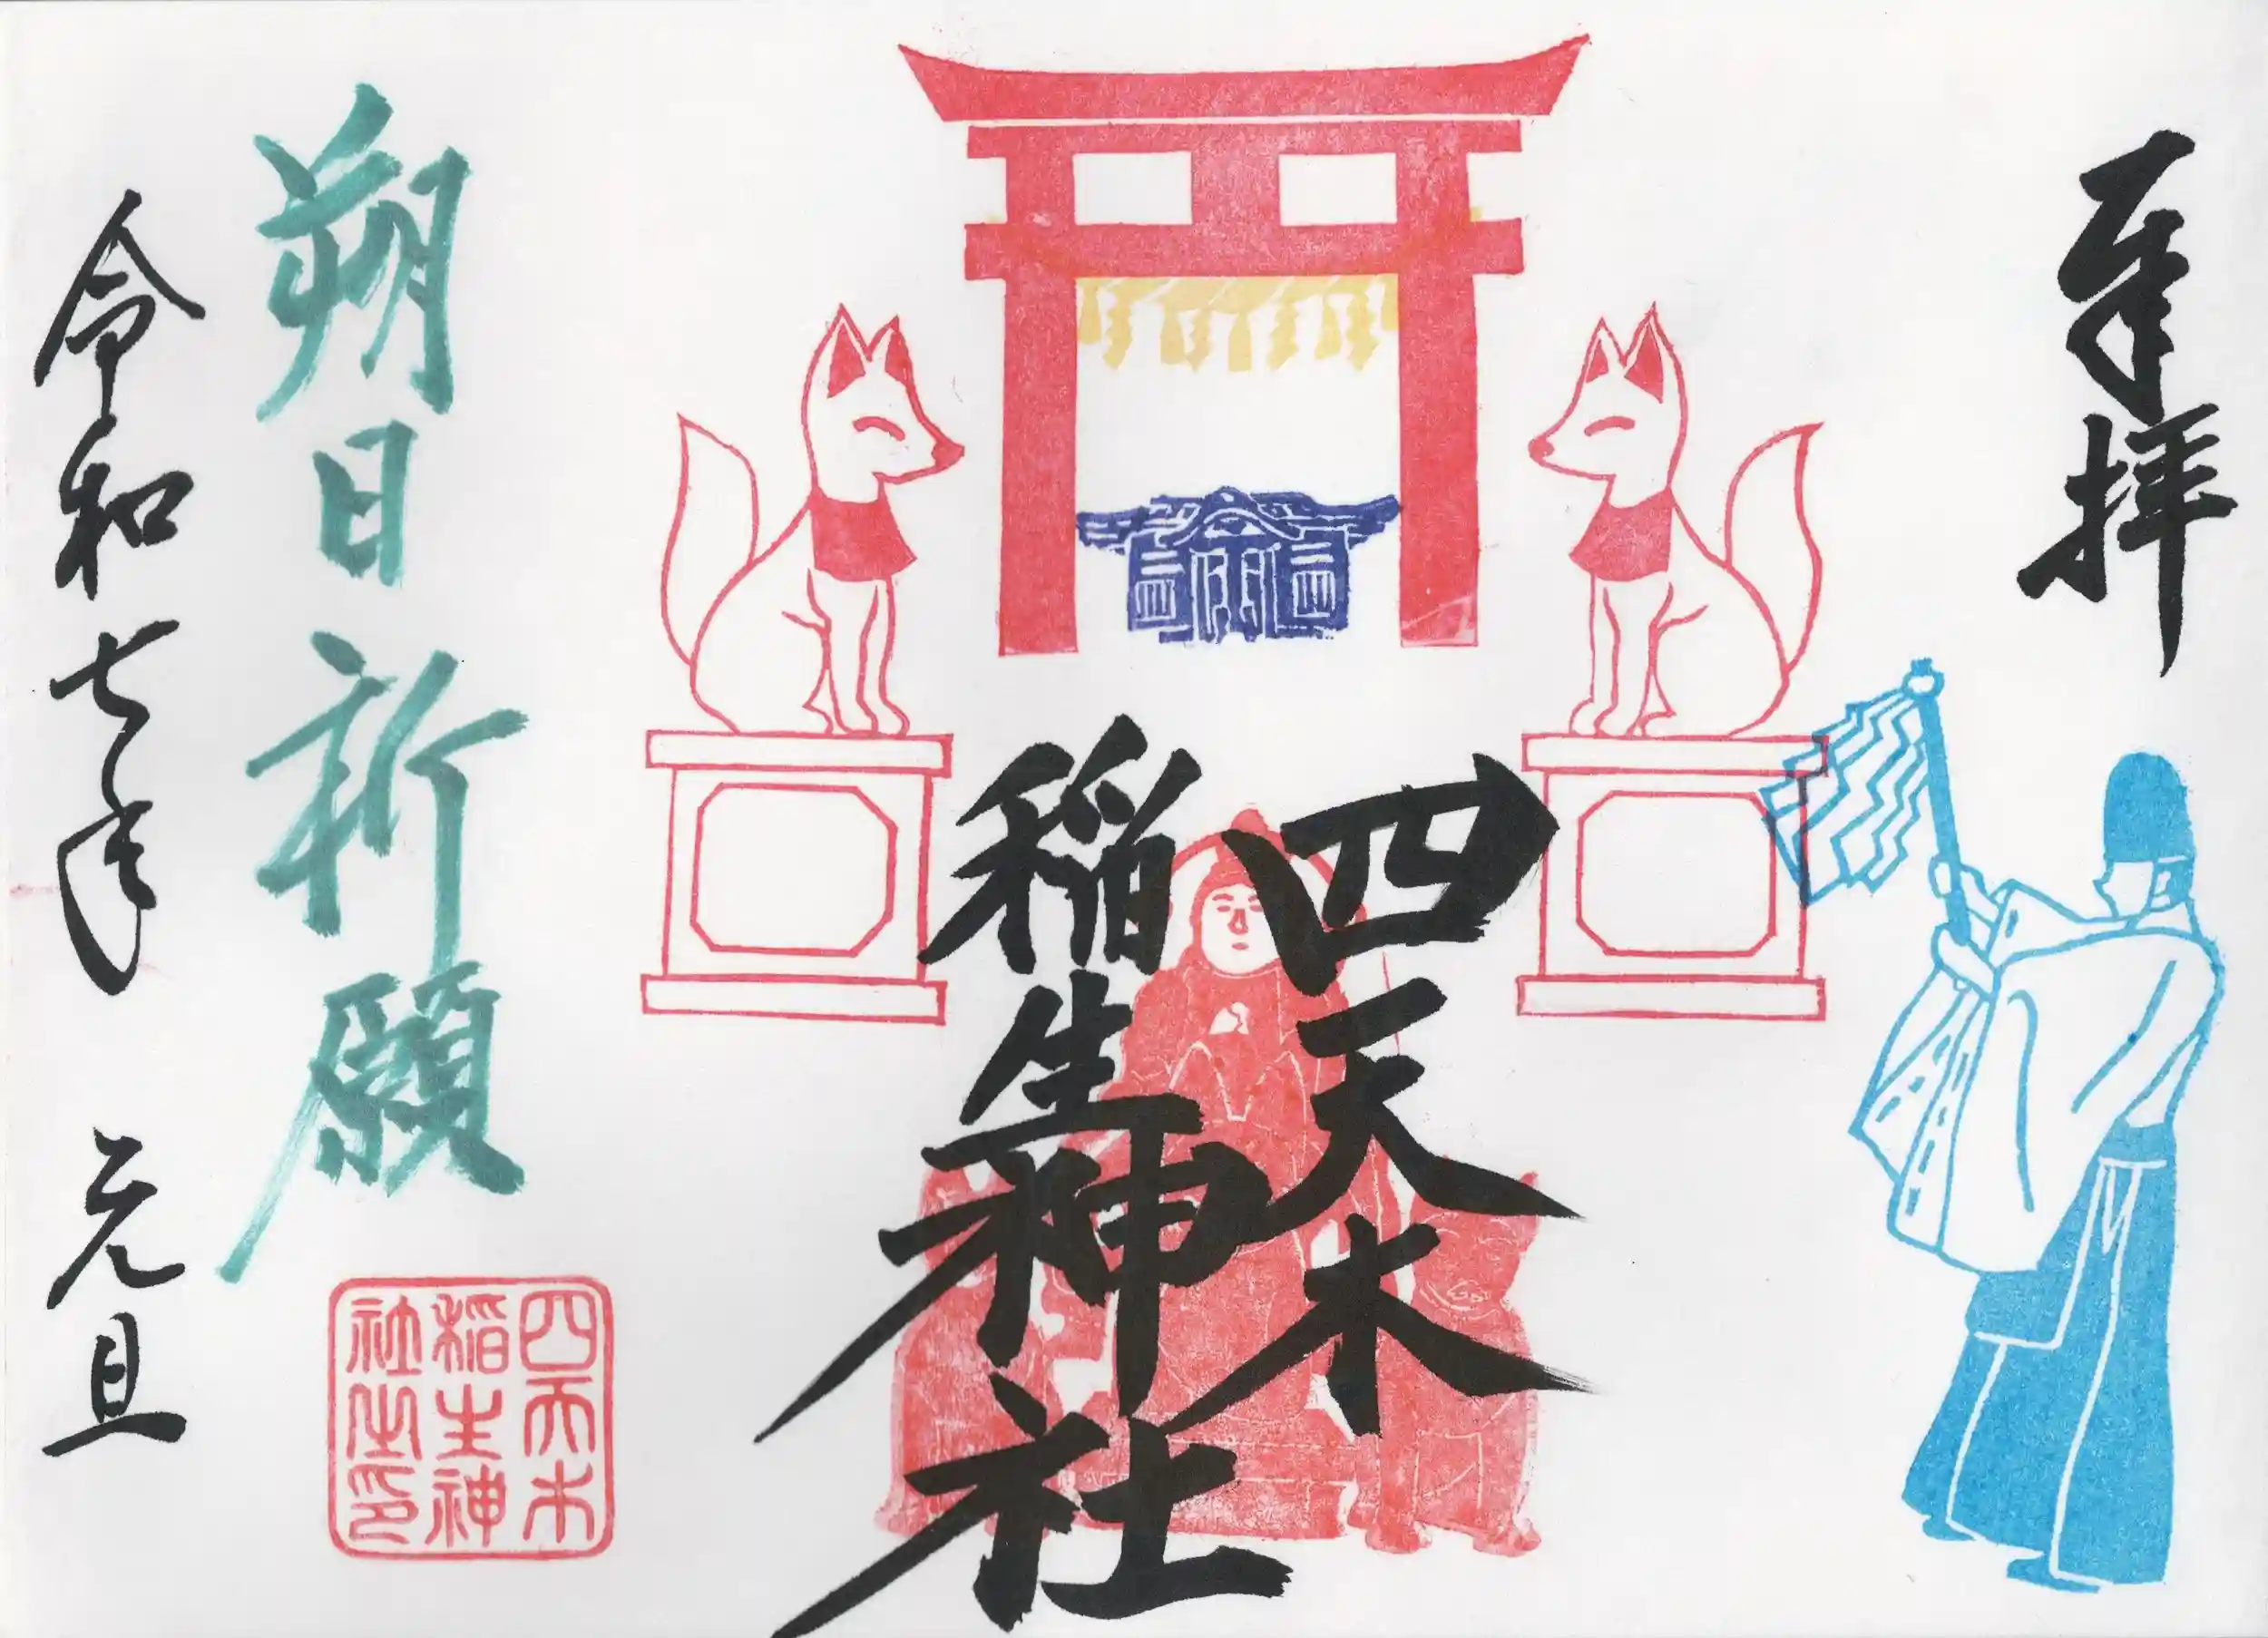 奉拝
四天木
稲生神社
朔日祈願
四天木
稲生神
社之印
令和七年 元旦